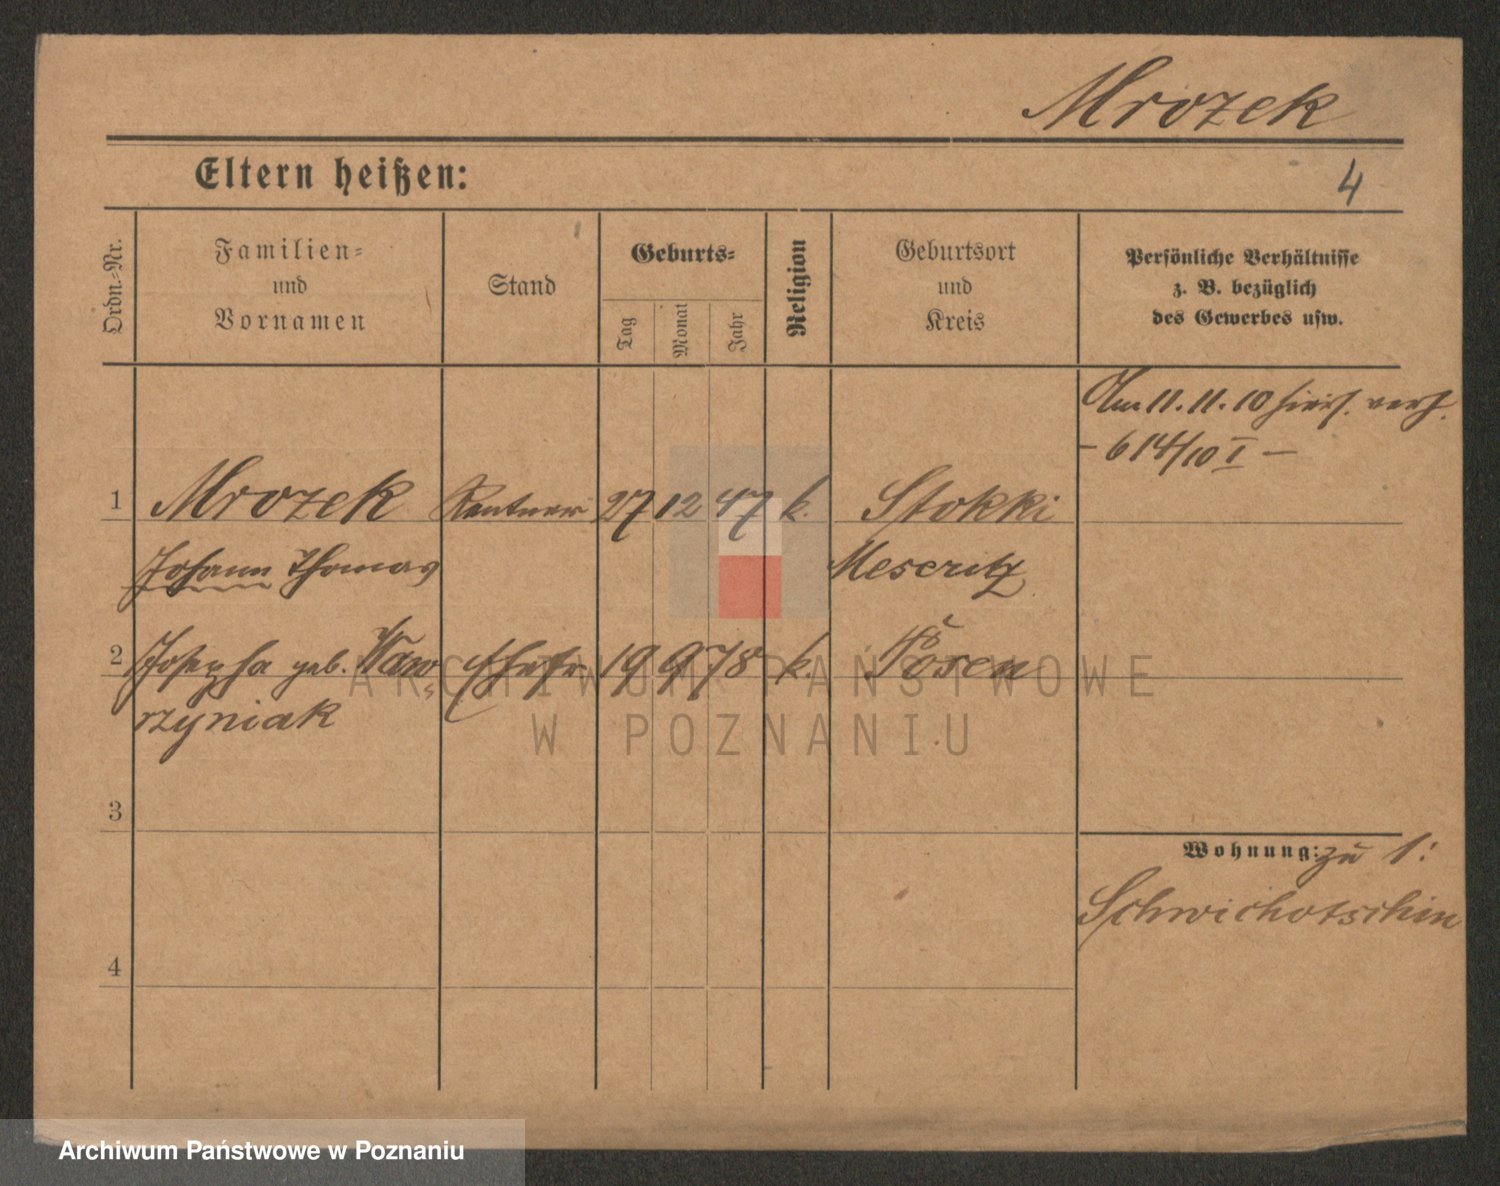 Mrozek
Eltern heißen:
4
Ordn.-Nr.
Familien-
und
Vornamen
Stand
Geburts-
Tag
Monat
Jahr
Religion
Geburtsort
und
Kreis
Persönliche Verhältnisse
z. B. bezüglich
des Gewerbes usw.
Am 11.11.10 hiers. verh.
- 614/10 I -
1 Mrozek Rentner 27 12 47 k. Stokki
Johann Thomas Meseritz
2 Josepha geb. Waw- Ehefr. 19 9 78 k. Posen
rzyniak
3
Wohnung: zu 1:
Schwichotschin
4
ARCHIWUM PAŃSTWOWE
W POZNANIU
Archiwum Państwowe w Poznaniu